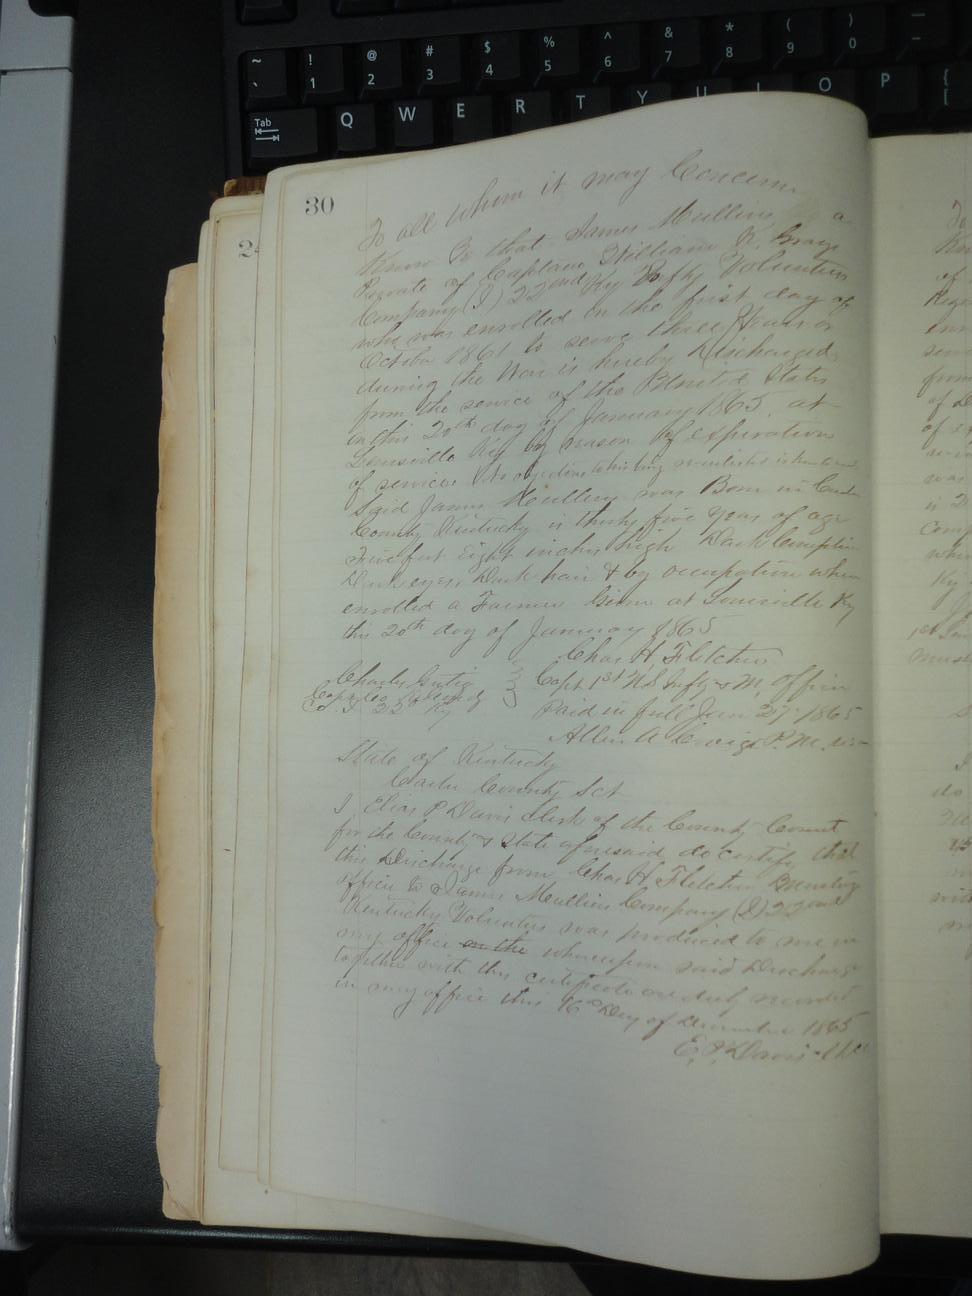 ~ ! @ # $ % ^ & * ( ) —
` 1 2 3 4 5 6 7 8 9 0 -
Tab Q W E R T Y U I O P { [
30
To all whom it may Concern
Know Ye that James Mullins a
Private of Captain William K. Gray
Company (I) 22nd Ky Infty Volunteers
who was enrolled on the first day of
October 1861 to serve three Years or
during the War is hereby Discharged
from the service of the United States
on this 20th day of January 1865 at
Louisville Ky by reason of expiration
of service No objection
Said James Mullins was Born in Carter
County Kentucky is thirty five years of age
Five feet Eight inches high Dark Complexion
Dark eyes, Dark hair & by occupation when
enrolled a Farmer Given at Louisville Ky
this 20th day of January 1865
Chas H Fletcher
Capt 1st U S Infty & M. officer
Charles
Co. I 22d Ky
Paid in full Jan 27 1865
Allen A P.M.
State of Kentucky
Carter County Sct
I Elias P Davis Clerk of the County Court
for the County & State aforesaid do certify that
this Discharge from Chas H Fletcher Mustering
officer to James Mullins Company (I) 22nd
Kentucky Volunteers was produced to me in
my office on the whereupon said Discharge
together with this certificate are duly recorded
in my office this 16th Day of December 1865
E. P. Davis Clk